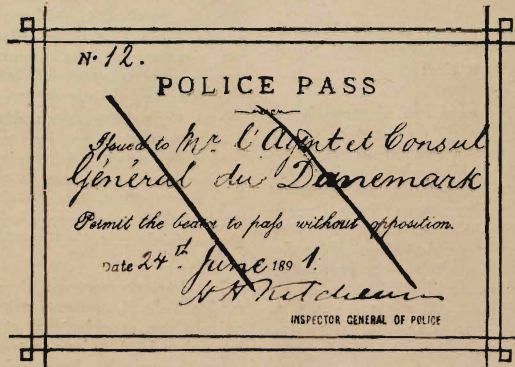 No. 12.
POLICE PASS
Issued to Mr. l'Agent et Consul
Général du Danemark
Permit the bearer to pass without opposition.
Date 24th June 1891.
HH Kitchener
INSPECTOR GENERAL OF POLICE